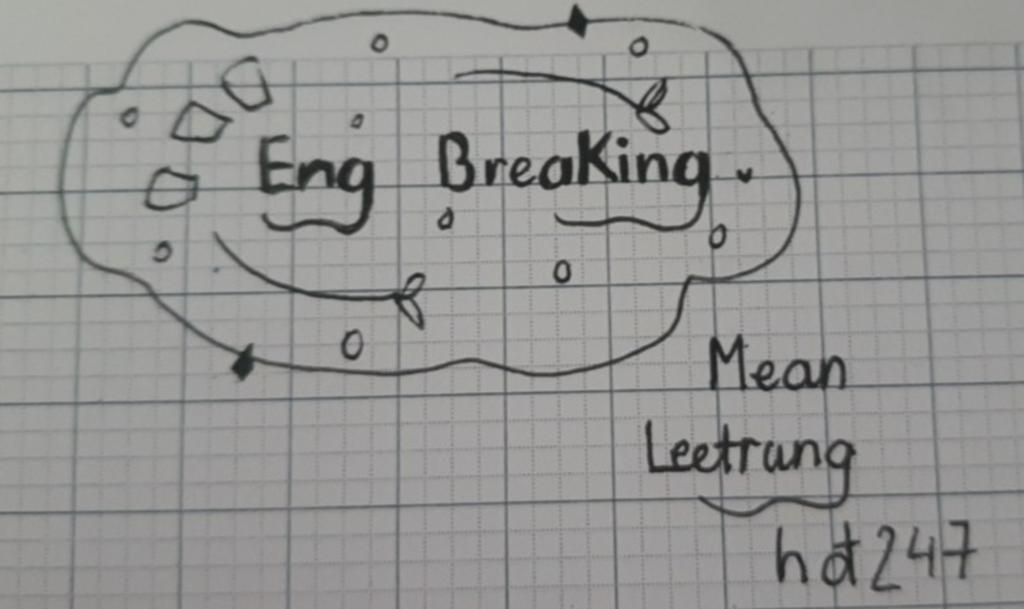 Eng BreaKing
Mean
Leetrung
hdt247